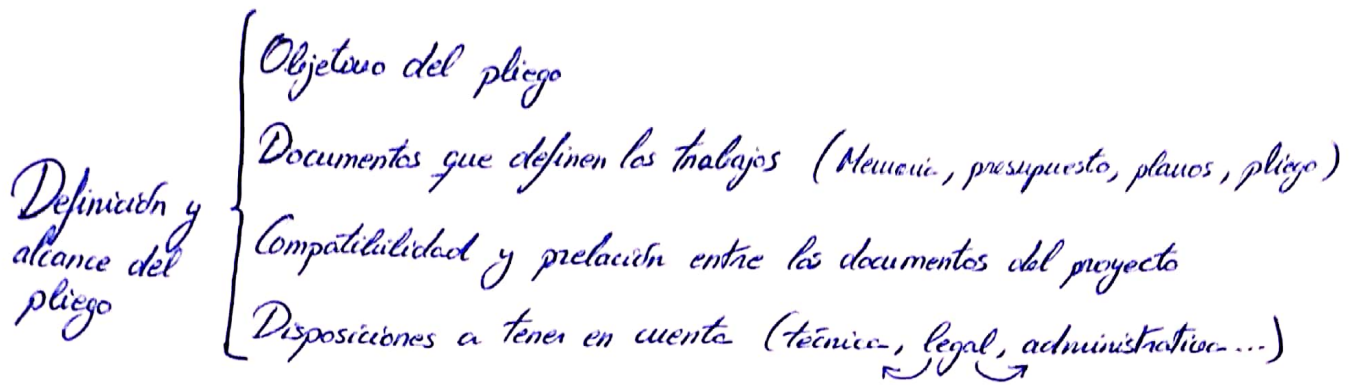 Definición y
alcance del
pliego
Objetivo del pliego
Documentos que definen los trabajos (Memoria, presupuesto, planos, pliego)
Compatibilidad y prelación entre los documentos del proyecto
Disposiciones a tener en cuenta (técnica, legal, administrativa...)